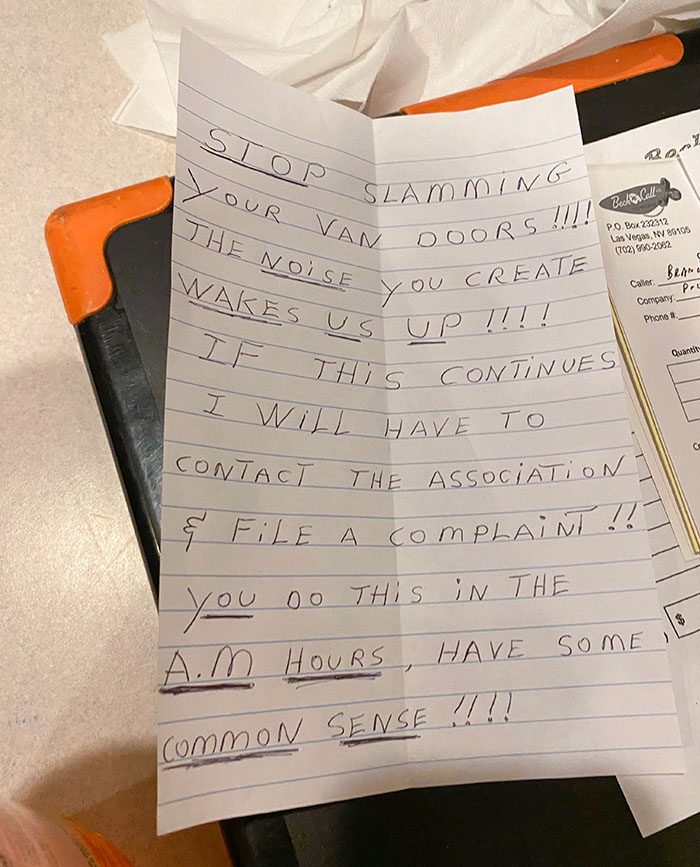 STOP SLAMMING
YOUR VAN DOORS !!!!
THE NOISE YOU CREATE
WAKES US UP !!!!
IF THIS CONTINUES
I WILL HAVE TO
CONTACT THE ASSOCIATION
& FILE A COMPLAINT !!
YOU DO THIS IN THE
A.M HOURS, HAVE SOME
COMMON SENSE !!!!
Beck Call
P.O. Box 232312
Las Vegas, NV 89105
(702) 990-2062
Caller:
Company:
Phone #:
$